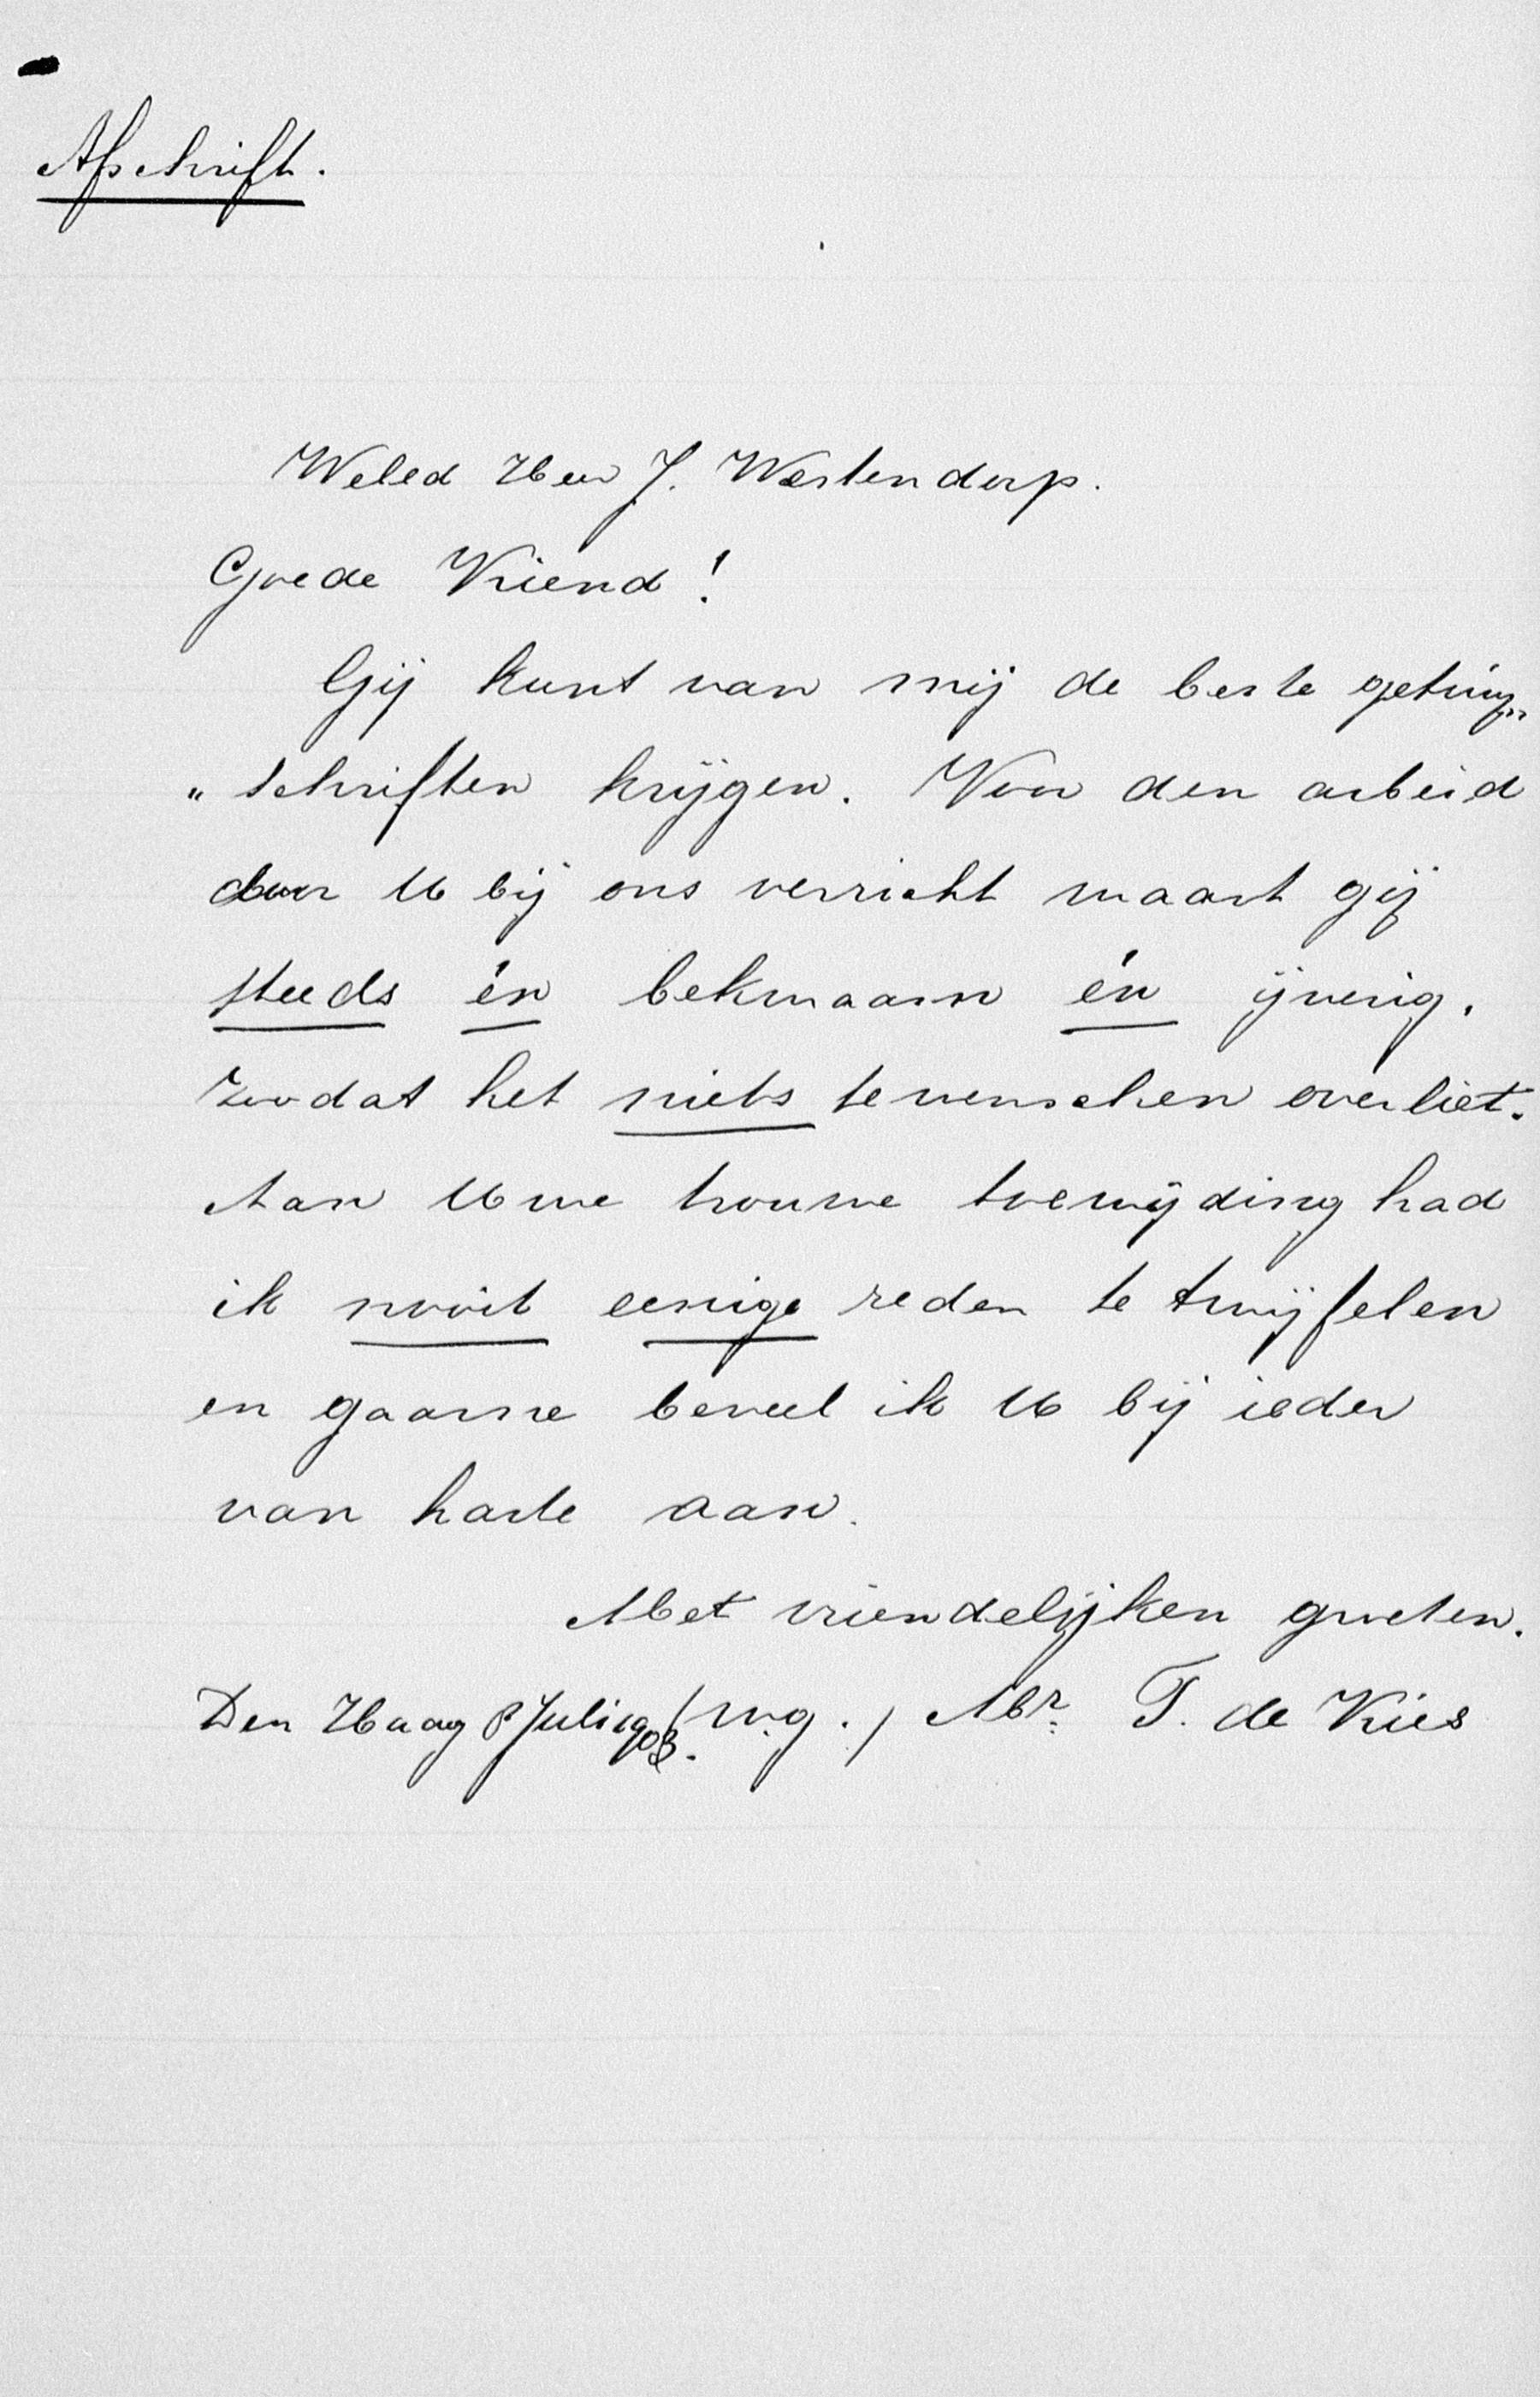 Afschrift.
Weled Heer J. Westendorp.
Goede Vriend!
Gij kunt van mij de beste getuig„
„schriften krijgen. Voor den arbeid
door U bij ons verricht waart gij
steeds én bekwaam én ijverig,
zoodat het niets te wenschen overliet.
Aan Uwe trouwe toewijding had
ik nooit eenige reden te twijfelen
en gaarne beveel ik U bij ieder
van harte aan.
Met vriendelijken groeten.
Den Haag 8 Juli 1903. (w.g.) Mr. T. de Vries